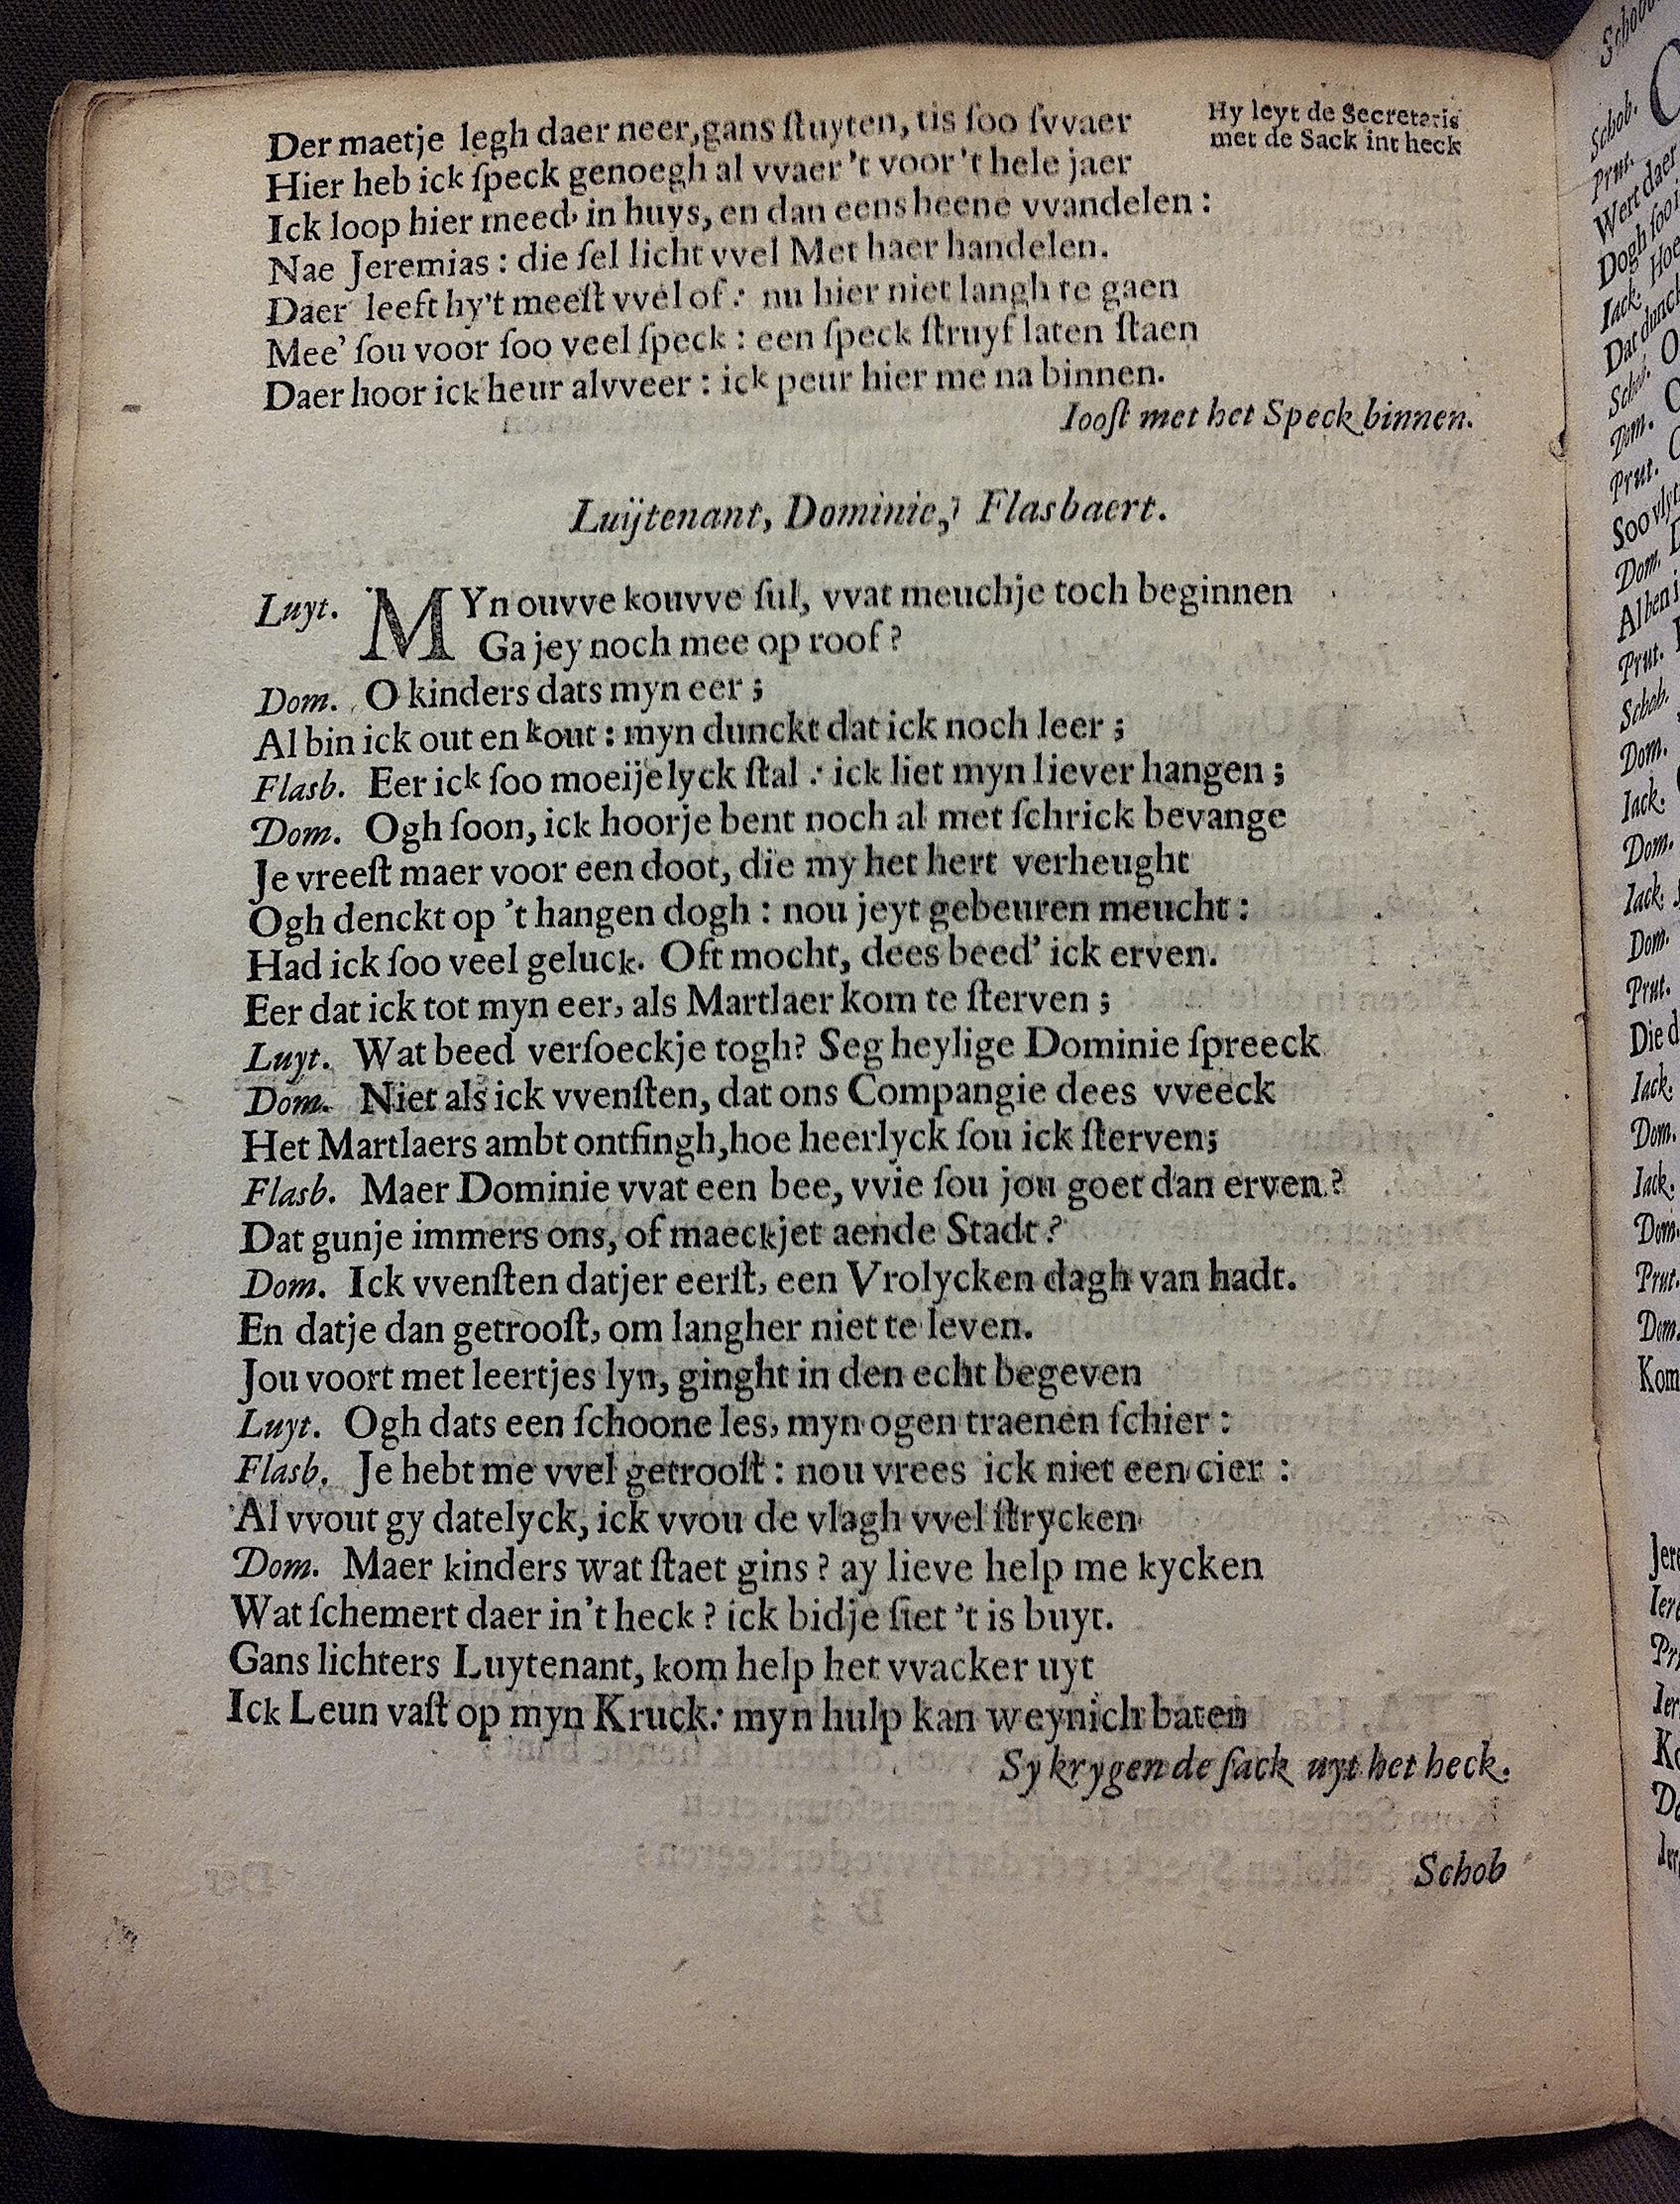 Der maetje legh daer neer,gans ſtuyten, tis ſoo ſvvaer
Hy leyt de Secretaris
met de Sack int heck
Hier heb ick ſpeck genoegh al vvaer 't voor 't hele jaer
Ick loop hier meed, in huys, en dan eens heene vvandelen :
Nae Jeremias : die ſel licht vvel Met haer handelen.
Daer leeft hy't meeſt vvel of : nu hier niet langh te gaen
Mee' ſou voor ſoo veel ſpeck : een ſpeck ſtruyf laten ſtaen
Daer hoor ick heur alvveer : ick peur hier me na binnen.
Iooſt met het Speck binnen.
Luijtenant, Dominie, Flasbaert.
Luyt. MYn ouvve kouvve ſul, vvat meuchje toch beginnen
Ga jey noch mee op roof ?
Dom. O kinders dats myn eer ;
Al bin ick out en kout : myn dunckt dat ick noch leer ;
Flasb. Eer ick ſoo moeijelyck ſtal : ick liet myn liever hangen ;
Dom. Ogh ſoon, ick hoorje bent noch al met ſchrick bevange
Je vreeſt maer voor een doot, die my het hert verheught
Ogh denckt op 't hangen dogh : nou jeyt gebeuren meucht :
Had ick ſoo veel geluck. Oft mocht, dees beed' ick erven.
Eer dat ick tot myn eer, als Martlaer kom te ſterven ;
Luyt. Wat beed verſoeckje togh? Seg heylige Dominie ſpreeck
Dom. Niet als ick vvenſten, dat ons Compangie dees vveeck
Het Martlaers ambt ontfingh,hoe heerlyck ſou ick ſterven;
Flasb. Maer Dominie vvat een bee, vvie ſou jou goet dan erven ?
Dat gunje immers ons, of maeckjet aende Stadt ?
Dom. Ick vvenſten datjer eerſt, een Vrolycken dagh van hadt.
En datje dan getrooſt, om langher niet te leven.
Jou voort met leertjes lyn, ginght in den echt begeven
Luyt. Ogh dats een ſchoone les, myn ogen traenen ſchier :
Flasb. Je hebt me vvel getrooſt : nou vrees ick niet een cier :
Al vvout gy datelyck, ick vvou de vlagh vvel ſtrycken
Dom. Maer kinders wat ſtaet gins ? ay lieve help me kycken
Wat ſchemert daer in't heck ? ick bidje ſiet 't is buyt.
Gans lichters Luytenant, kom help het vvacker uyt
Ick Leun vaſt op myn Kruck: myn hulp kan weynich baten
Sy krygen de ſack uyt het heck.
Schob